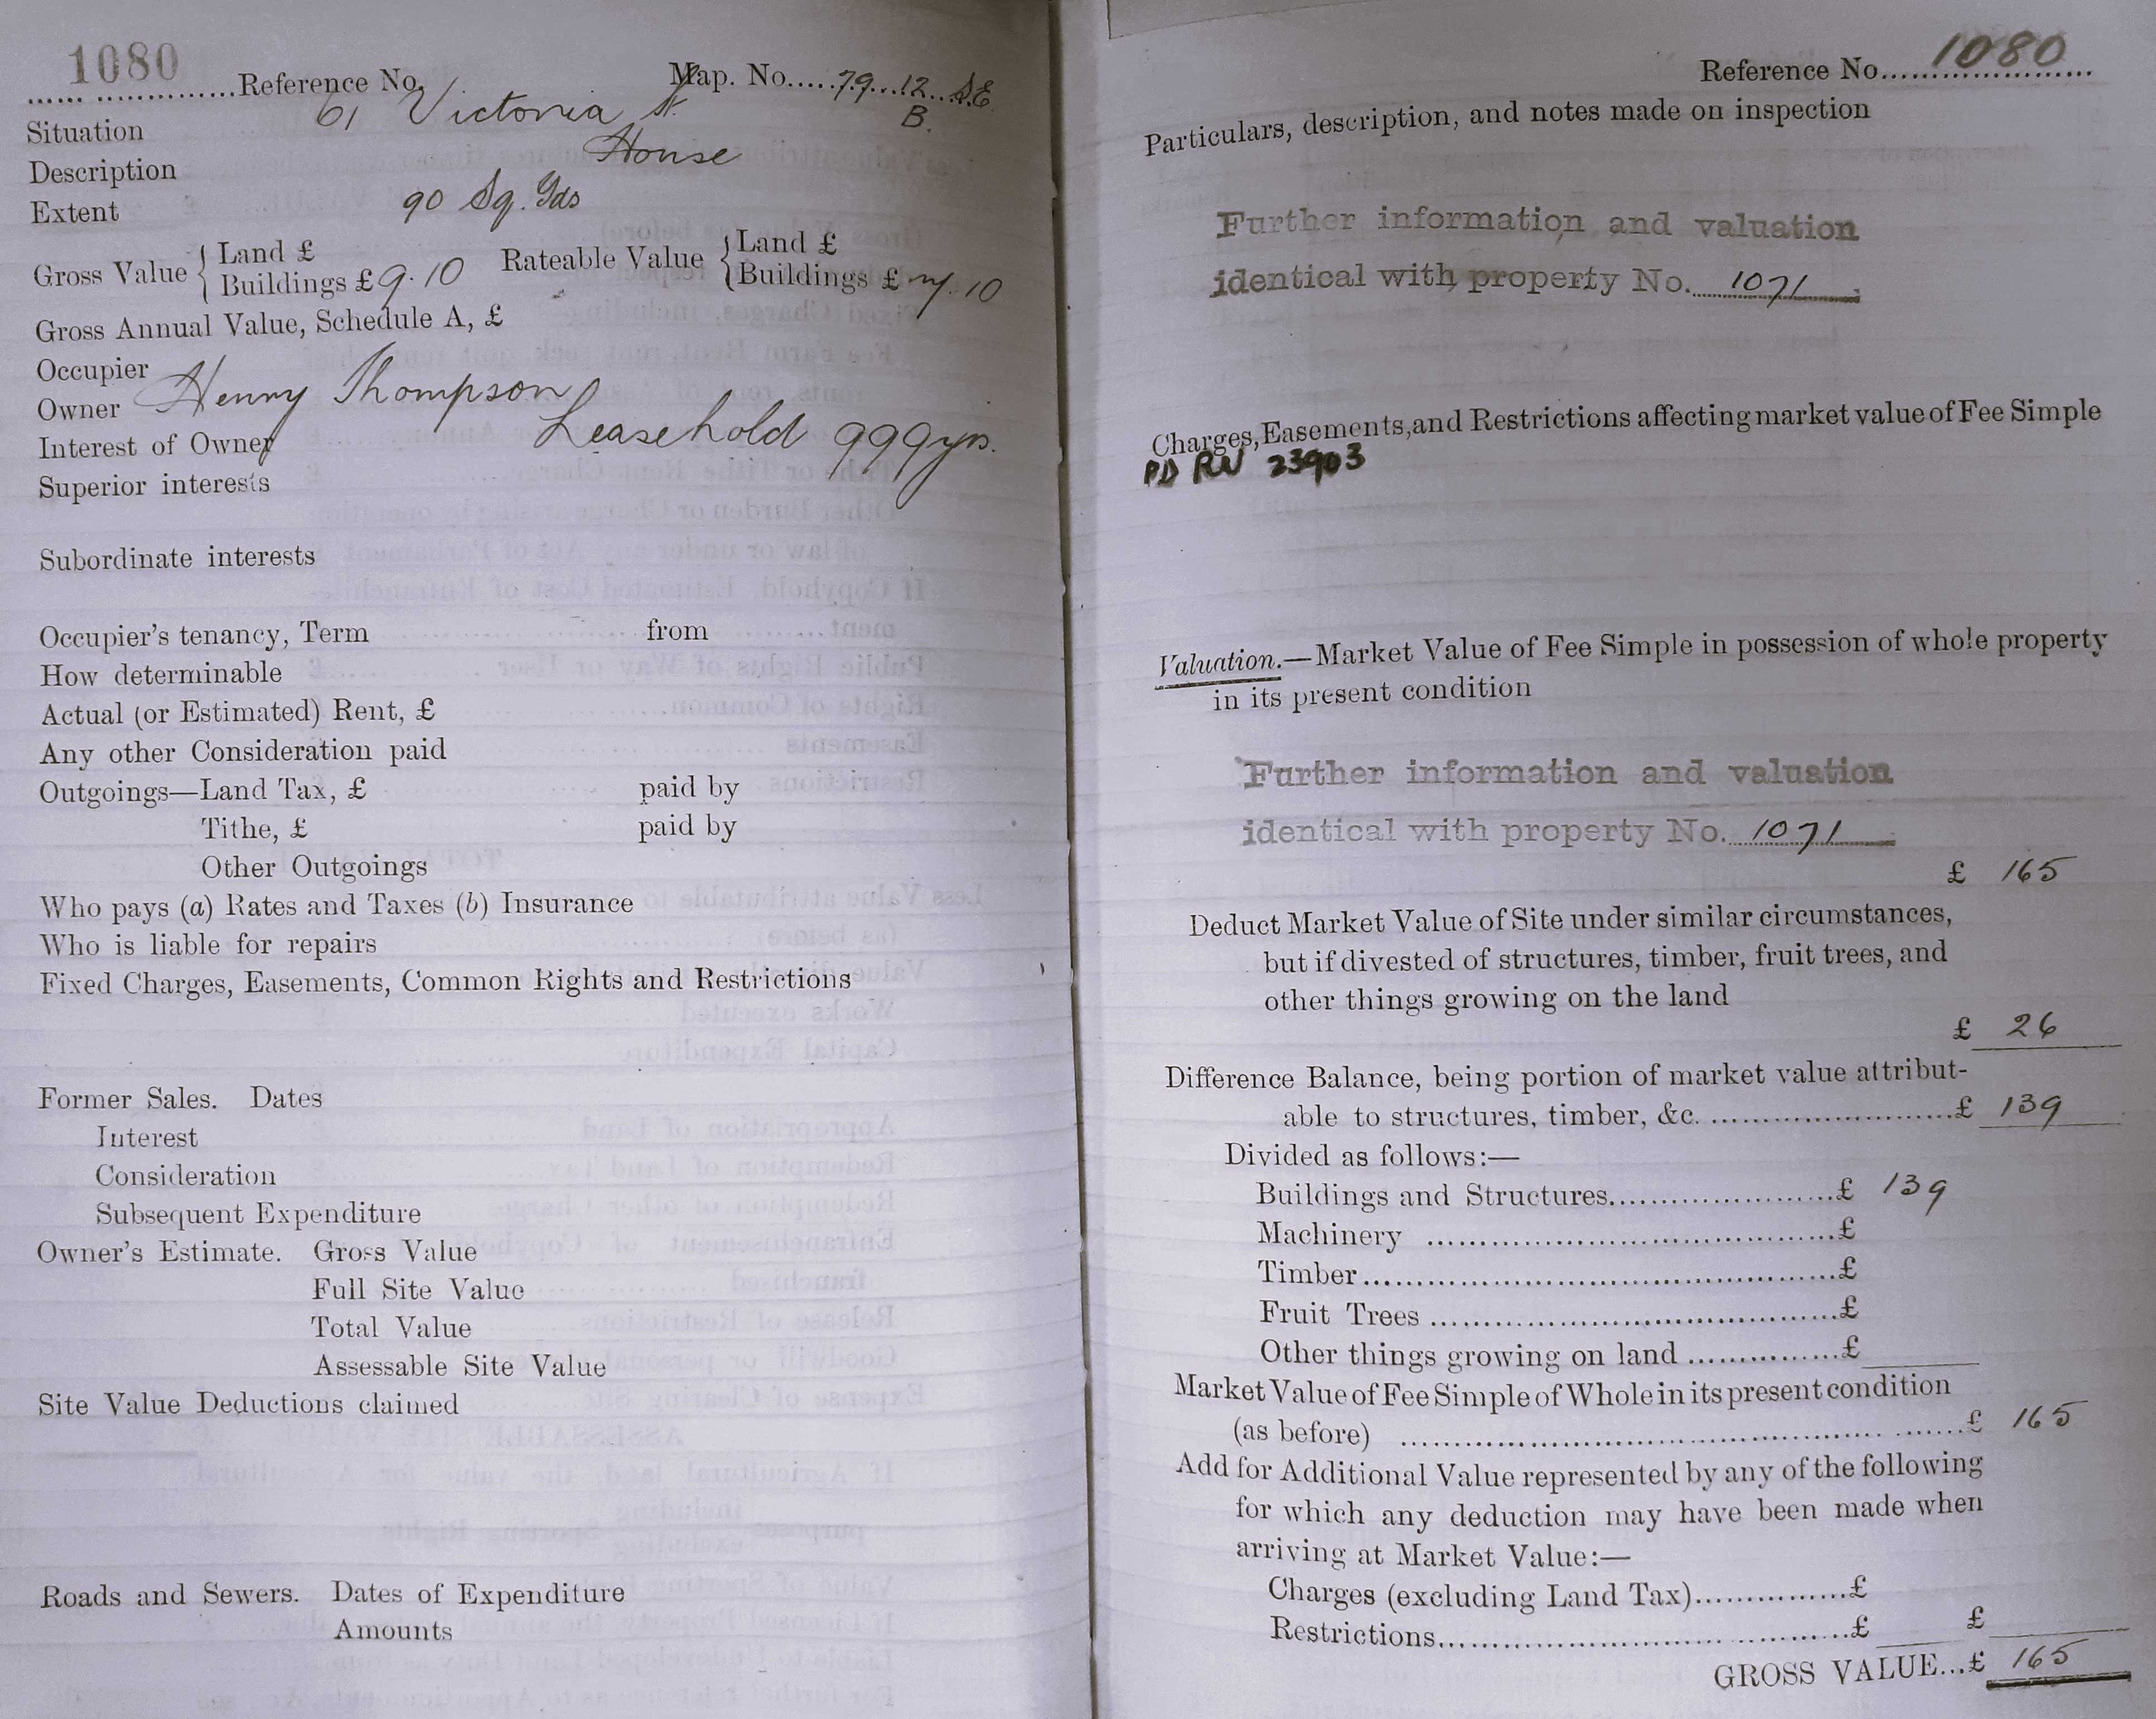 1080 Reference No. Map. No. 79 12 S.E.
B.
Situation 61 Victoria St.
Description House
Extent 90 Sq. Yds
Gross Value { Land £ Rateable Value { Land £
Buildings £ 9.10 Buildings £ 7.10
Gross Annual Value, Schedule A, £
Occupier
Owner Henry Thompson
Interest of Owner Leasehold 999 yrs.
Superior interests
Subordinate interests
Occupier's tenancy, Term from
How determinable
Actual (or Estimated) Rent, £
Any other Consideration paid
Outgoings—Land Tax, £ paid by
Tithe, £ paid by
Other Outgoings
Who pays (a) Rates and Taxes (b) Insurance
Who is liable for repairs
Fixed Charges, Easements, Common Rights and Restrictions
Former Sales. Dates
Interest
Consideration
Subsequent Expenditure
Owner's Estimate. Gross Value
Full Site Value
Total Value
Assessable Site Value
Site Value Deductions claimed
Roads and Sewers. Dates of Expenditure
Amounts
Reference No. 1080
Particulars, description, and notes made on inspection
Further information and valuation
identical with property No. 1071
Charges, Easements, and Restrictions affecting market value of Fee Simple
PD RN 23903
Valuation.—Market Value of Fee Simple in possession of whole property
in its present condition
Further information and valuation
identical with property No. 1071
£ 165
Deduct Market Value of Site under similar circumstances,
but if divested of structures, timber, fruit trees, and
other things growing on the land
£ 26
Difference Balance, being portion of market value attribut-
able to structures, timber, &c. £ 139
Divided as follows:—
Buildings and Structures £ 139
Machinery £
Timber £
Fruit Trees £
Other things growing on land £
Market Value of Fee Simple of Whole in its present condition
(as before) £ 165
Add for Additional Value represented by any of the following
for which any deduction may have been made when
arriving at Market Value:—
Charges (excluding Land Tax) £
Restrictions £ £
GROSS VALUE...£ 165